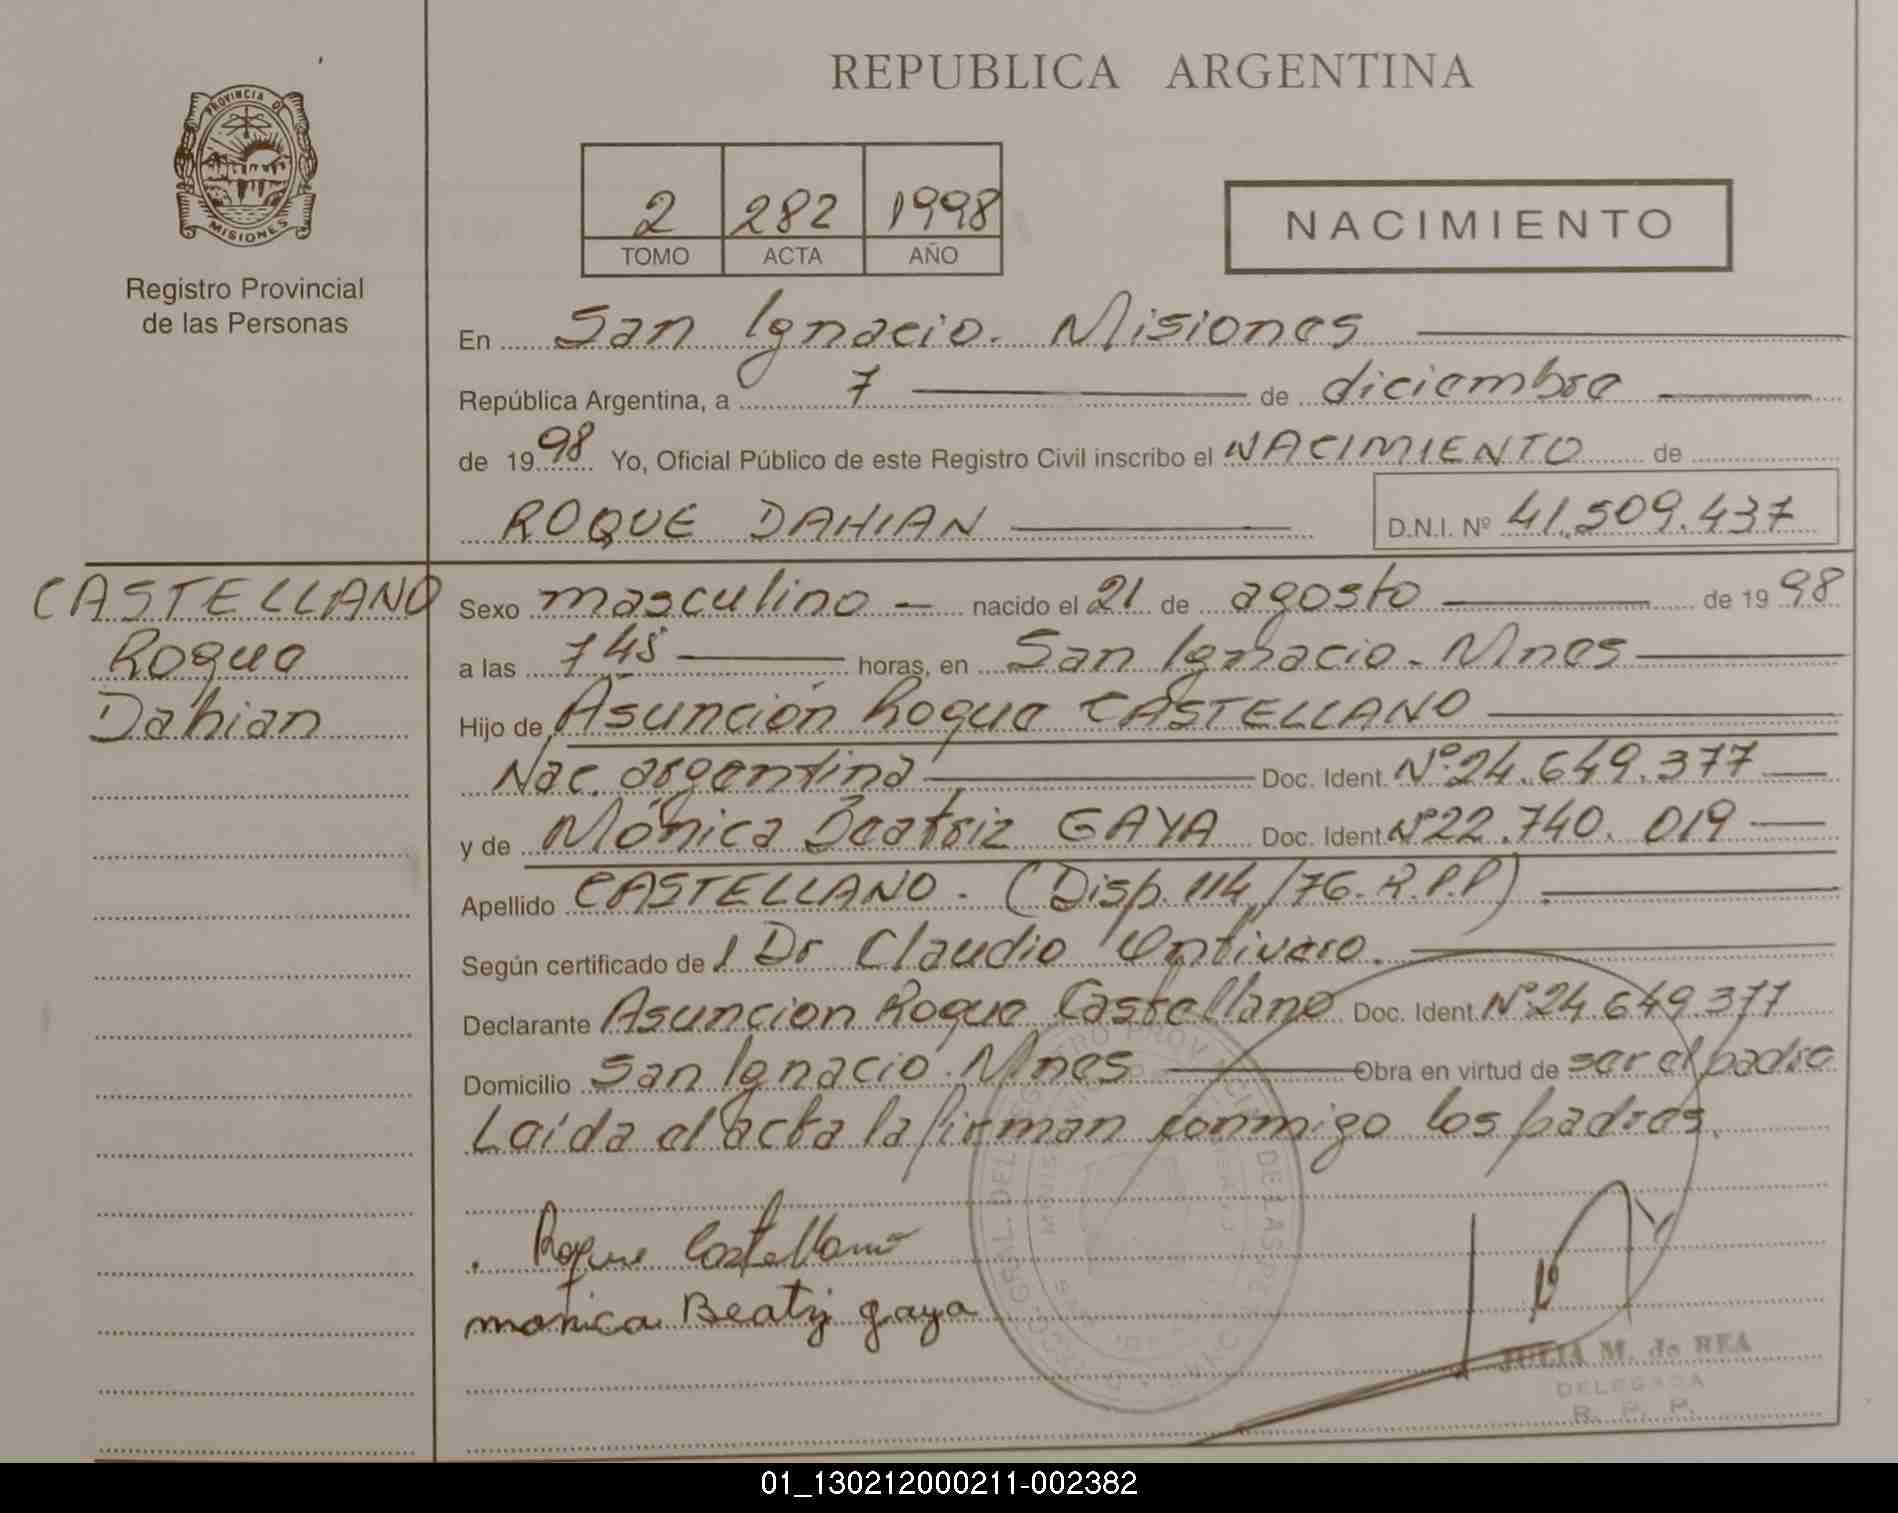 PROVINCIA DE
MISIONES
Registro Provincial
de las Personas
REPUBLICA ARGENTINA
2 282 1998
TOMO ACTA AÑO
NACIMIENTO
En San Ignacio. Misiones
República Argentina, a 7 de diciembre
de 1998 Yo, Oficial Público de este Registro Civil inscribo el NACIMIENTO de
ROQUE DAHIAN D.N.I. Nº 41.509.437
CASTELLANO
Roque
Dahian
Sexo masculino nacido el 21 de agosto de 1998
a las 745 horas, en San Ignacio. Mnes
Hijo de Asunción Roque CASTELLANO
Nac. argentina Doc. Ident. Nº 24.649.377
y de Mónica Beatriz GAYA Doc. Ident. Nº 22.740.019
Apellido CASTELLANO. (Disp. 114/76. R.P.P)
Según certificado de l Dr Claudio Ontivero.
Declarante Asuncion Roque Castellano Doc. Ident. Nº 24.649.377
Domicilio San Ignacio. Mnes Obra en virtud de ser el padre
Laída el acta la firman conmigo los padres.
Roque Castellano
monica Beatriz gaya
JULIA M. de REA
DELEGADA
R. P. P.
01_130212000211-002382